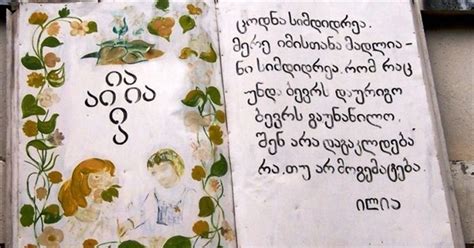 ია
აი ია
ი
ცოდნა სიმდიდრეა.
მერე იმისთანა მადლია-
ნი სიმდიდრეა, რომ რაც
უნდ. ბევრს დაურიგო
ბევრს გაუნაწილო.
შენ არა დაგაკლდება
რა. თუ არ მოგემატება.
ილია